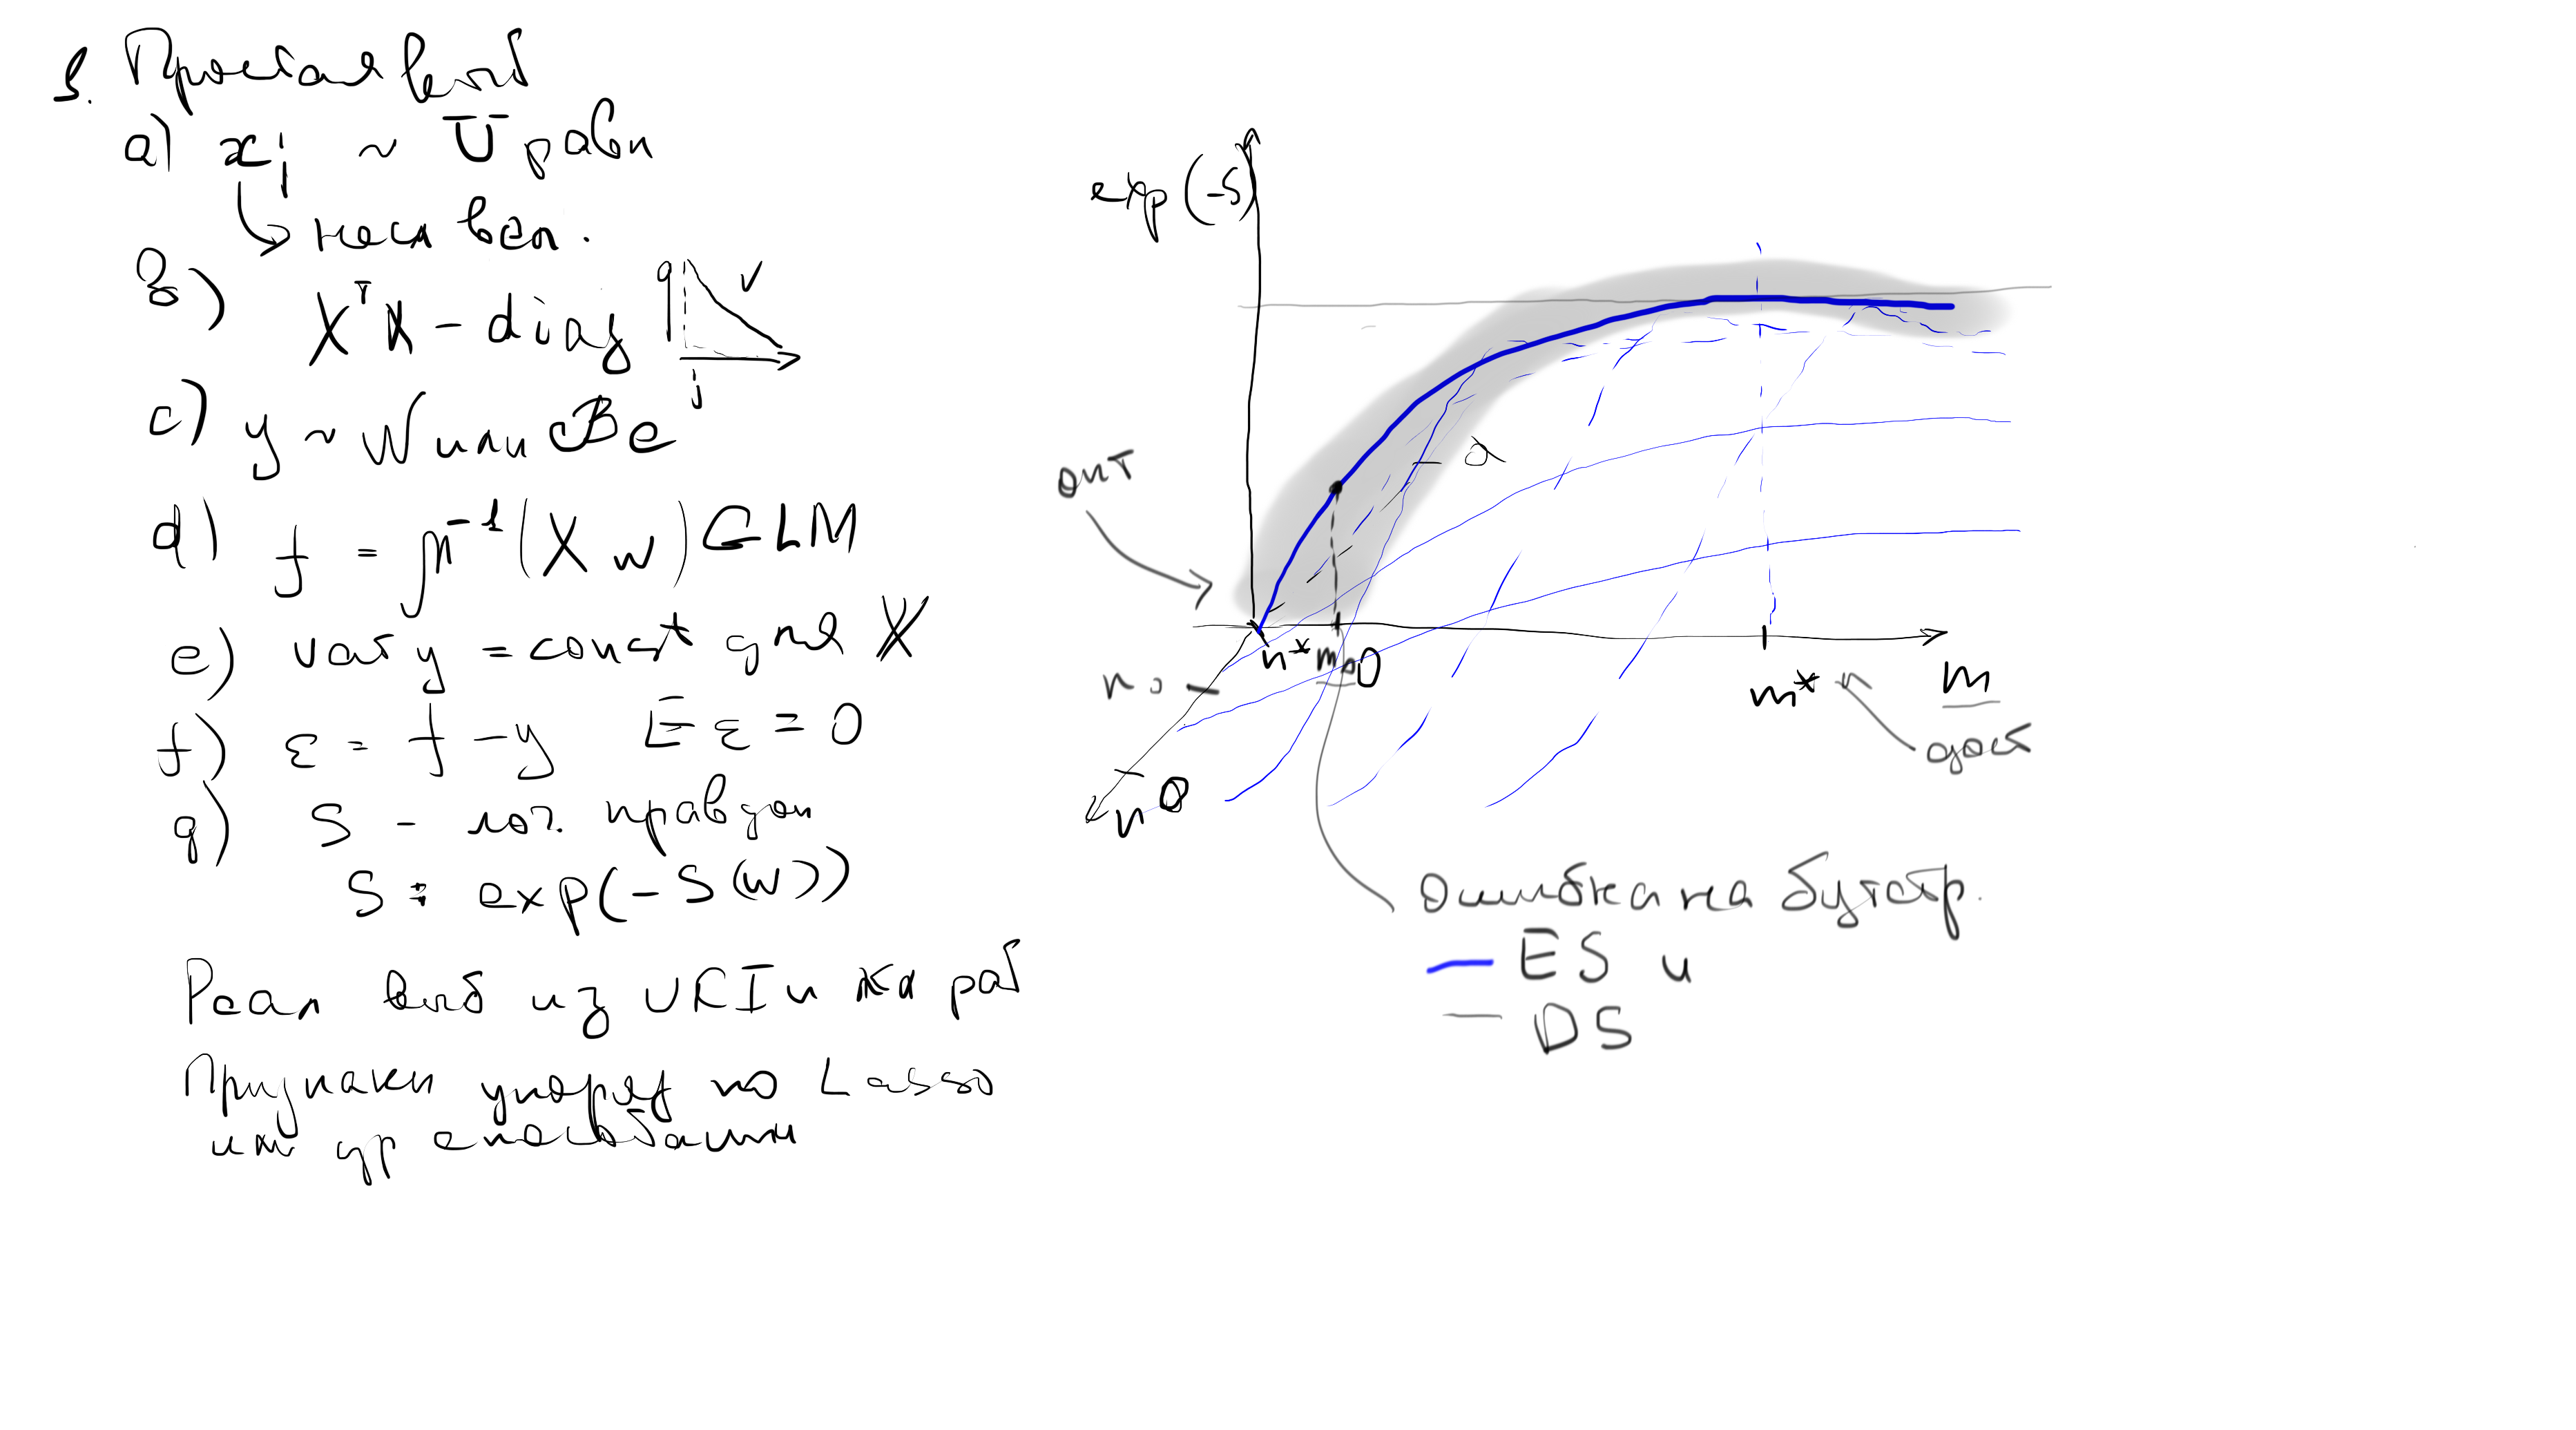 1. Простая выб
a) xj ~ U равн
незав вел.
b) XᵀX - diag
q v
j
c) y ~ N или Be
d) f = μ⁻¹(Xw) GLM
e) var y = const для X
f) ε = f - y Eε = 0
g) S - лог. правдоп
S: exp(-S(w))
Реал выб из UCI и жа раб
Признаки упоряд по Lasso
или др способами
exp(-S)
опт
n*
m0
0
n0
n
0
m*
m
дост
Ошибка на бутстр.
ES и
DS